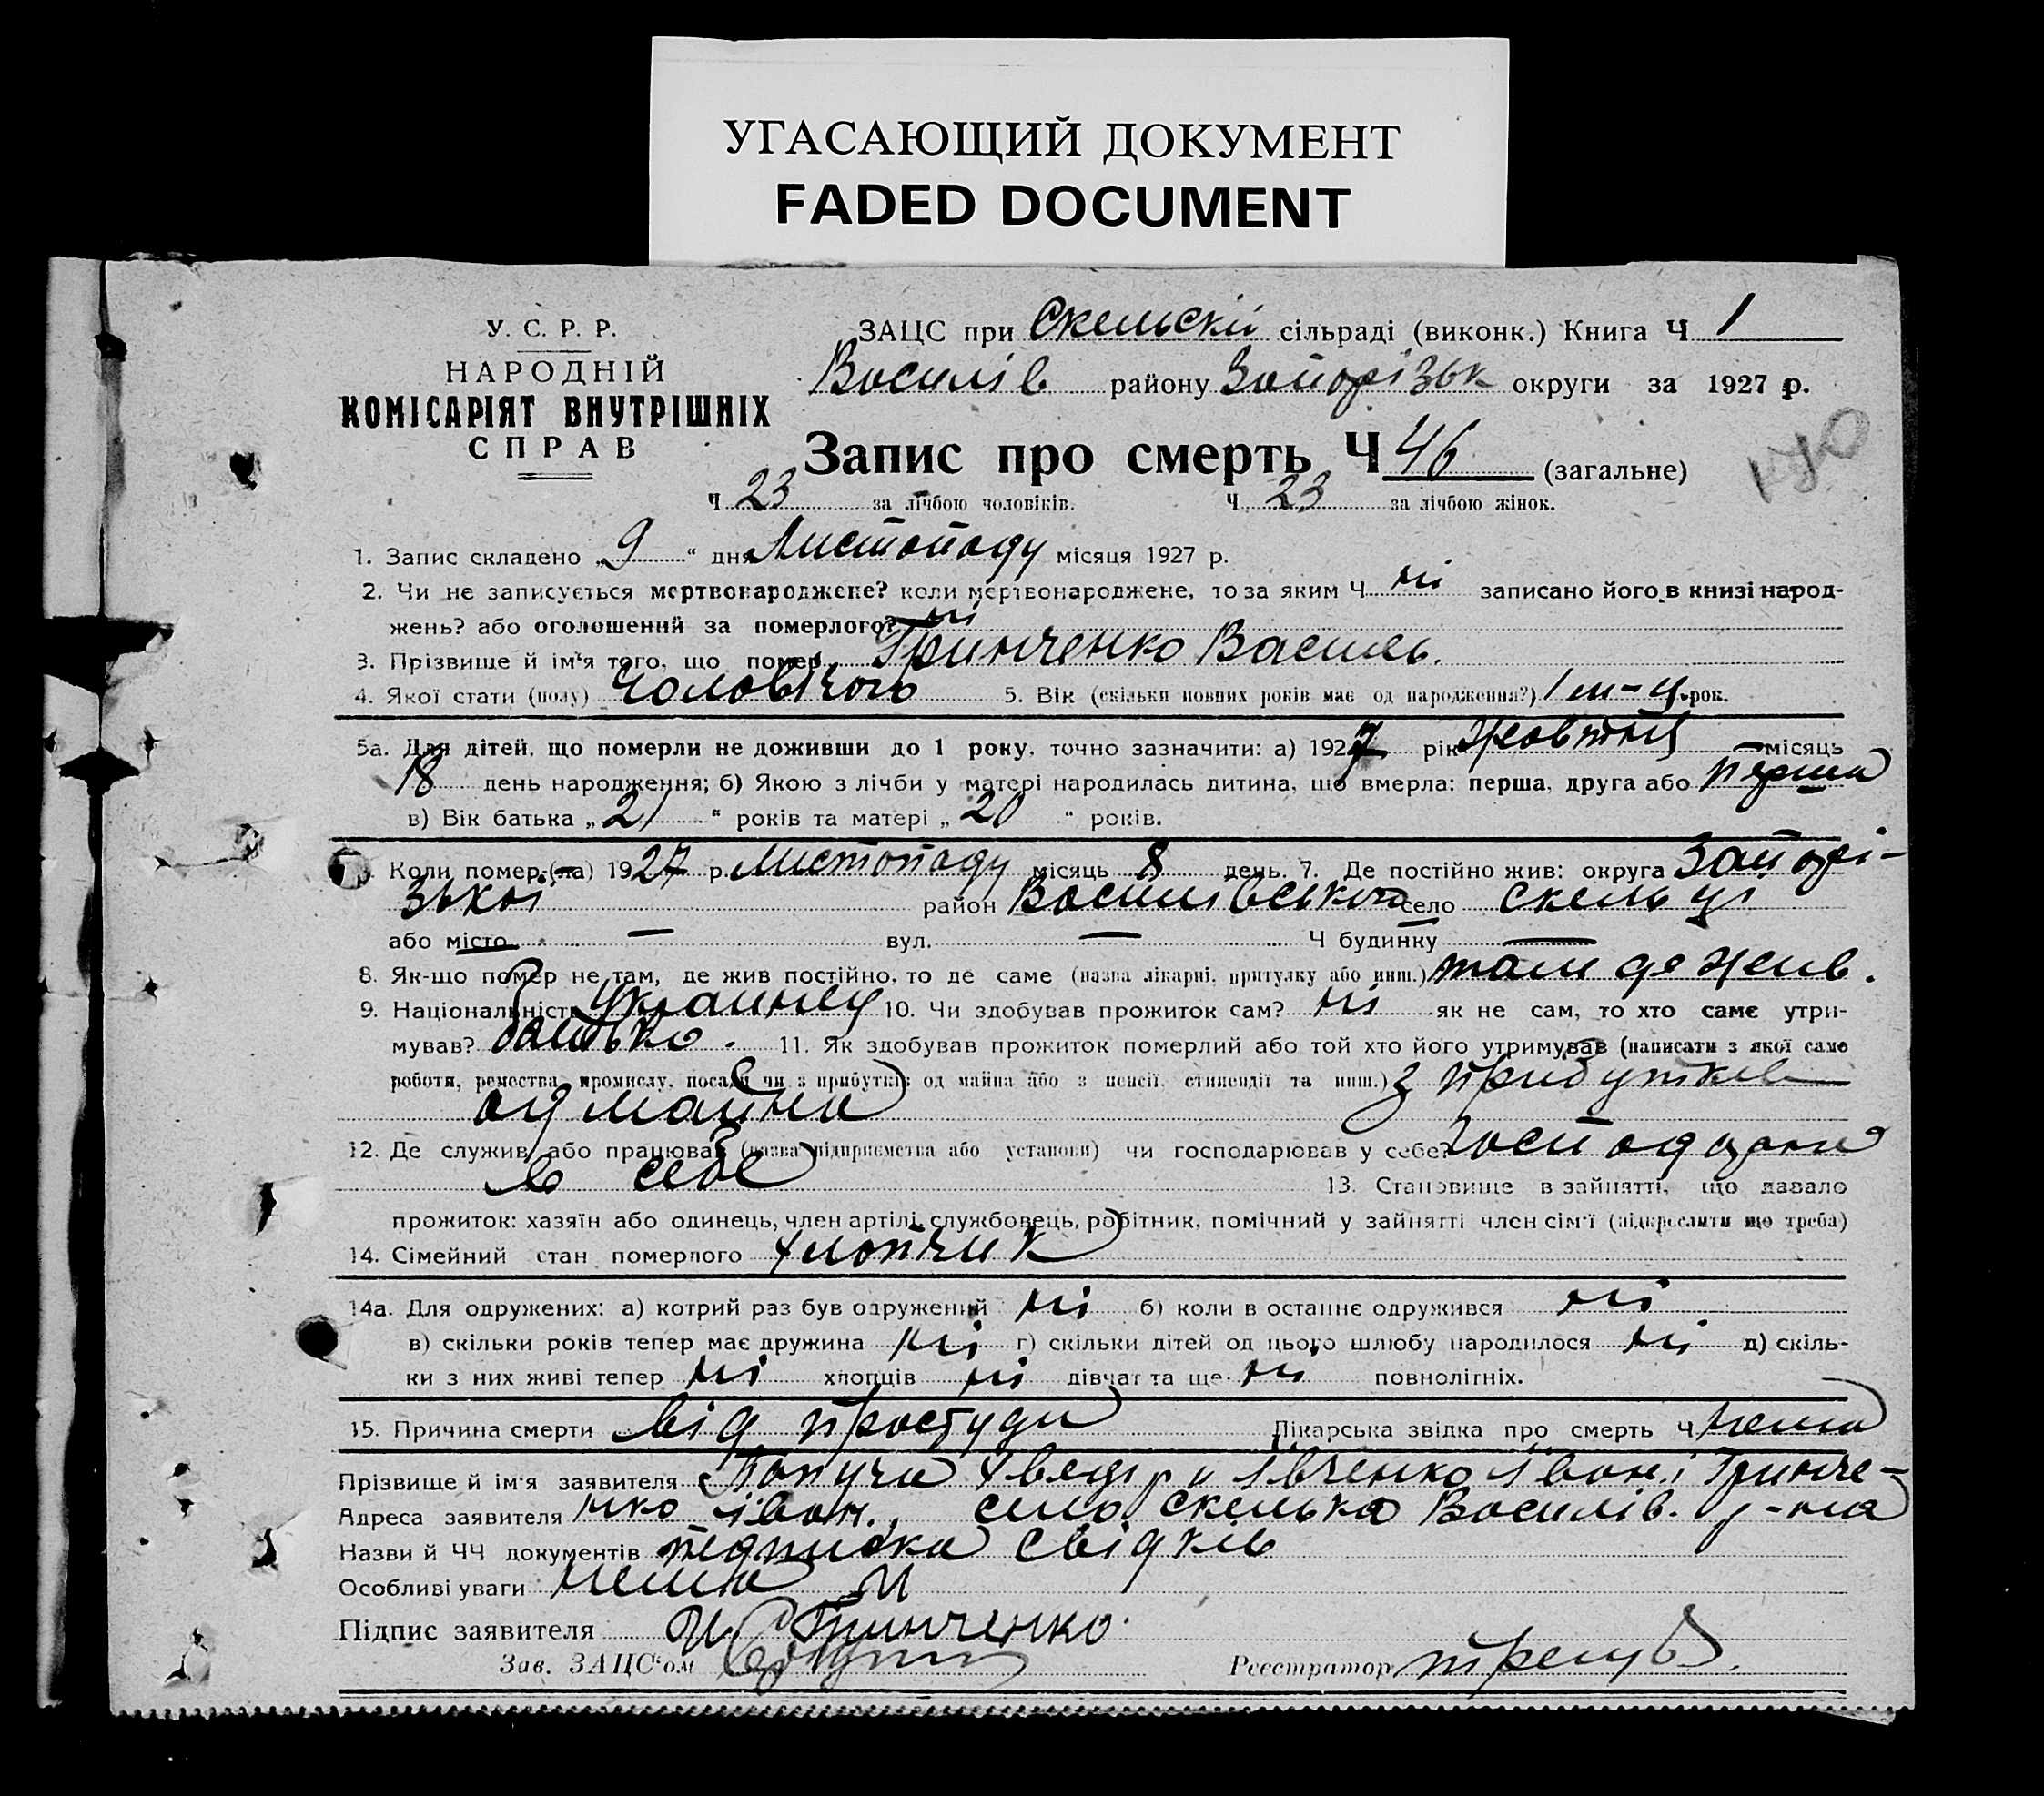 УГАСАЮЩИЙ ДОКУМЕНТ
FADED DOCUMENT
У. С. Р. Р.
НАРОДНІЙ
КОМІСАРІЯТ ВНУТРІШНІХ
СПРАВ
ЗАЦС при Скельскій сільраді (виконк.) Книга Ч 1
Василів району Запорізьк округи за 1927 р.
Запис про смерть Ч 46 (загальне)
Ч 23 за лічбою чоловіків. Ч 23 за лічбою жінок.
1. Запис складено „9“ дня Листопаду місяця 1927 р.
2. Чи не записується мертвонароджене? коли мертвонароджене, то за яким Ч ні записано його в книзі народ-
жень? або оголошений за померлого? ні
3. Прізвище й ім'я того, що помер Грінченко Василь.
4. Якої стати (полу) Чоловічого 5. Вік (скільки повних років має од народження?) 1 м-ц. рок.
5а. Для дітей, що померли не доживши до 1 року, точно зазначити: а) 1927 рік Жовтня місяць
18 день народження; б) Якою з лічби у матері народилась дитина, що вмерла: перша, друга або перша
в) Вік батька „21“ років та матері „20“ років.
Коли помер (ла) 1927 р. Листопаду місяць 8 день. 7. Де постійно жив: округа Запорі-
зької район Василівського село Скельці
або місто — вул. — Ч будинку —
8. Як-що помер не там, де жив постійно, то де саме (назва лікарні, притулку або инш.) там де жив.
9. Національність Украинец 10. Чи здобував прожиток сам? ні як не сам, то хто саме утри-
мував? батько. 11. Як здобував прожиток померлий або той хто його утримував (написати з якої саме
роботи, ремества, промислу, посади чи з прибутків од майна або з пенсії, стипендії та инш.) з прибутків
од майна
12. Де служив або працював (назва підприємства або установи) чи господарював у себе?
в себе 13. Становище в зайнятті, що давало
прожиток: хазяїн або одинець, член артілі, службовець, робітник, помічний у зайнятті член сім'ї (підкреслити що треба)
14. Сімейний стан померлого хлопчик
14а. Для одружених: а) котрий раз був одружений ні б) коли в останнє одружився ні
в) скільки років тепер має дружина ні г) скільки дітей од цього шлюбу народилося ні д) скіль-
ки з них живі тепер ні хлопців ні дівчат та ще ні повнолітніх.
15. Причина смерти від простуди Лікарська звідка про смерть Ч нема
Прізвище й ім'я заявителя Івченко Іван і Грінче-
Адреса заявителя нко іван. село Скелька Василів. р-на
Назви й ЧЧ документів підписка свідків
Особливі уваги нема
Підпис заявителя И Грінченко
Зав. ЗАЦС'ом
Реєстратор